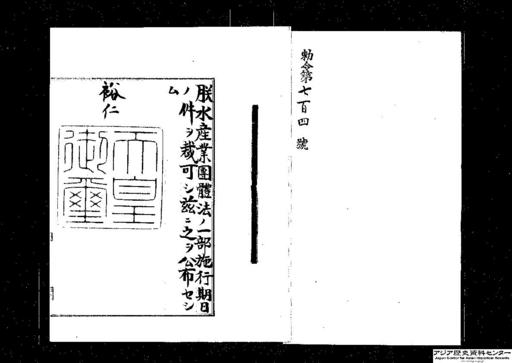 勅令第七百四號
朕水産業團體法ノ一部施行期日
ノ件ヲ裁可シ茲ニ之ヲ公布セシ
ム
裕仁
天皇
御璽
アジア歴史資料センター
Japan Center for Asian Historical Records